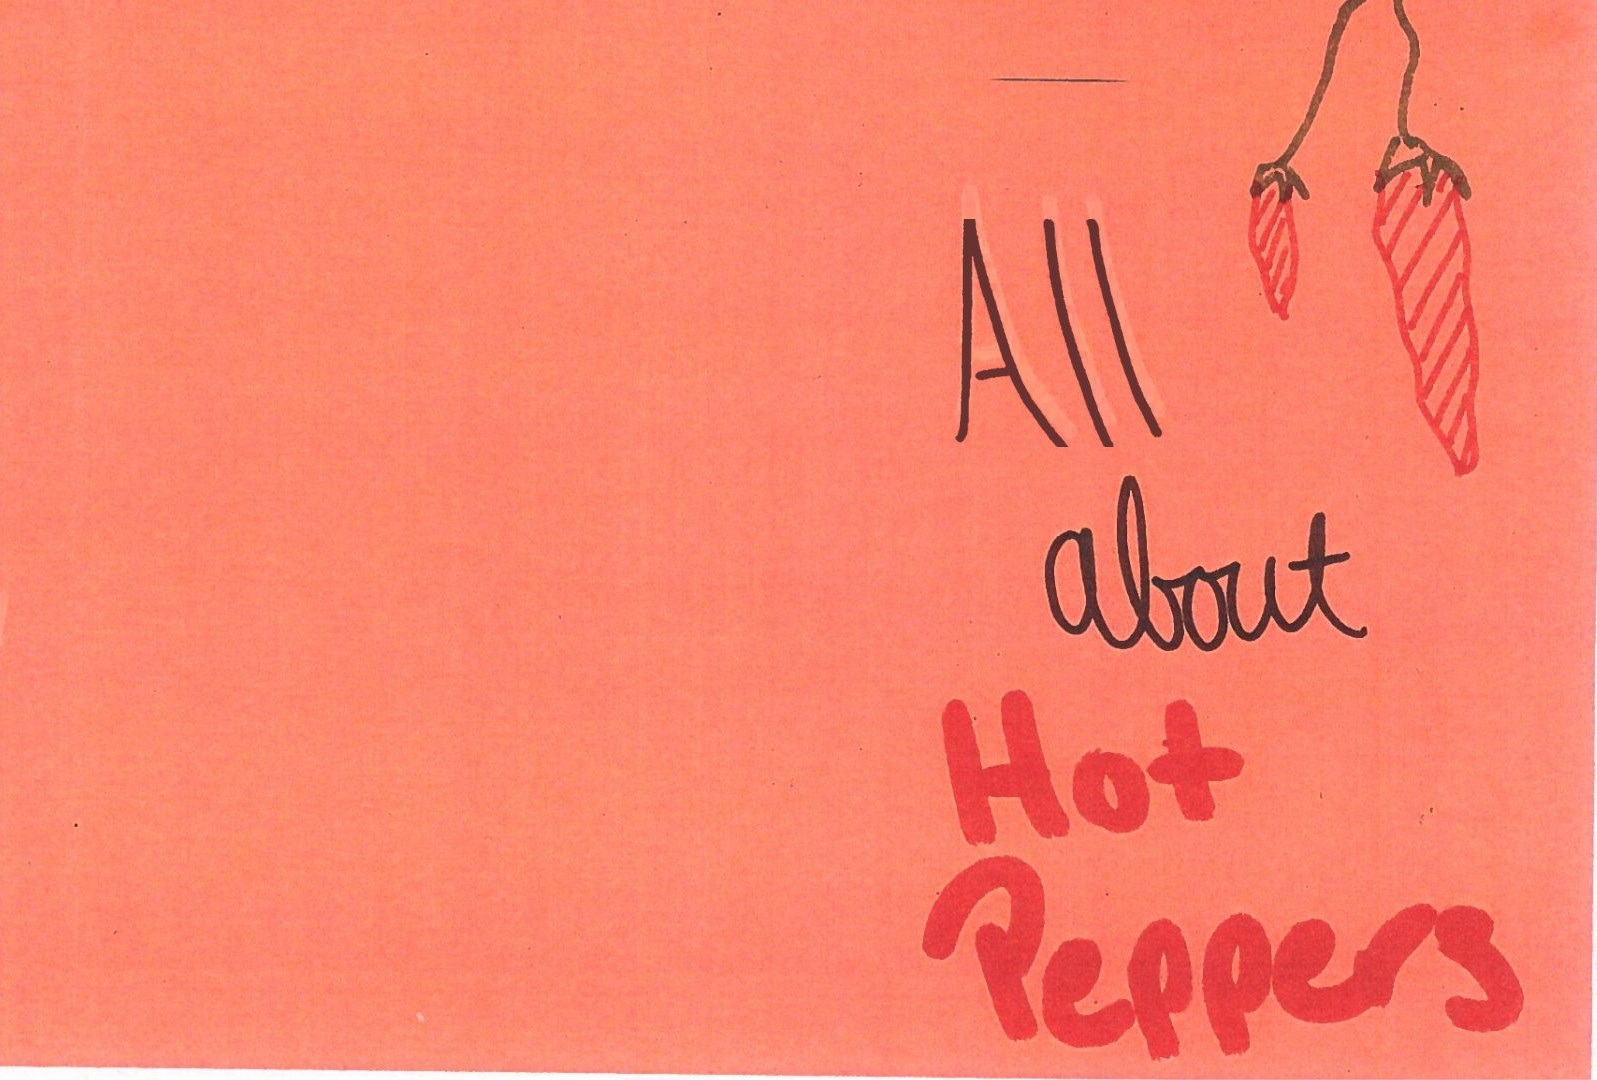 All
about
Hot
Peppers